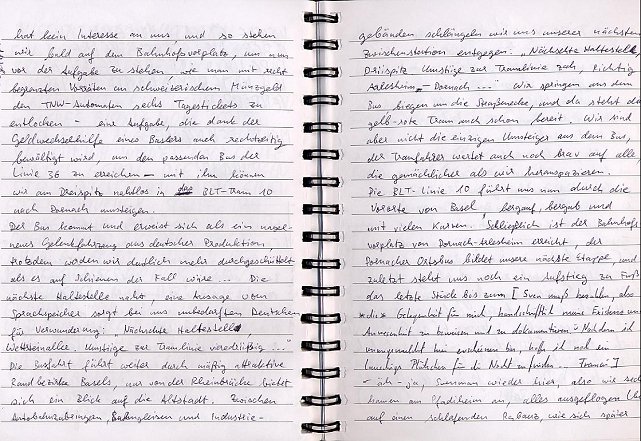 hat kein Interesse an uns und so stehen
wir bald auf dem Bahnhofsvorplatz, um nun
vor der Aufgabe zu stehen, wie man mit recht
begrenzten Vorräten an schweizerischem Münzgeld
den TNW-Automaten sechs Tagestickets zu
entlocken - eine Aufgabe, die dank der
Geldwechselhilfe eines Baslers auch rechtzeitig
bewältigt wird, um den passenden Bus der
Linie 36 zu erreichen - mit ihm können
wir am Dreispitz nahtlos in BLT-Tram 10
nach Dornach umsteigen.
Der Bus kommt und erweist sich als ein nagel-
neues Gelenkfahrzeug aus deutscher Produktion,
trotzdem werden wir deutlich mehr durchgeschüttelt
als es auf Schienen der Fall wäre... Die
nächste Haltestelle naht, eine Aussage vom
Sprachspeicher sorgt bei uns unbedarften Deutschen
für Verwunderung: Nächschte Haltestell
Wettsteinallee Umstiige zur Tramlinie ..."
Die Busfahrt führt weiter durch mäßig attraktive
Randbezirke Basels, nur von der Rheinbrücke bietet
sich ein Blick auf die Altstadt. Zwischen
Autobahnzubringern, Bahngleisen und Industrie-
gebäuden schlängeln wir uns unserer nächsten
Zwischenstation entgegen. "Nächschte Haltestell
Driispitz Umstiige zur Tramlinie zäh, Richtig
Arlesheim, Dornach ..." Wir springen aus dem
Bus biegen um die Straßenecke, und da steht die
gelb-rote Tram auch schon bereit. Wir sind
aber nicht die einzigen Umsteiger aus dem Bus,
der Tramfahrer wartet auch noch brav auf alle
die gemächlicher als wir heranspazieren.
Die BLT-Linie 10 führt uns nun durch die
Vororte von Basel, bergauf, bergab und
mit vielen Kurven. Schließlich ist der Bahnhofs-
vorplatz von Dornach-Arlesheim erreicht, der
Dornacher Ortsbus bildet unsere nächste Etappe, und
zuletzt steht uns noch ein Aufstieg zu Fuß
das letzte Stück bis zum [Sven muß bezahlen, also
*die* Gelegenheit für mich, handschriftlich meine Existenz und
Anwesenheit zu beweisen und zu dokumentieren." Nachdem ich
unangemeldet hier erschienen bin, hoffe ich noch ein
lauschiges Plätzchen für die Nacht zu finden...]
- ah-ja, wieder hier, also wir
kamen am Pfadiheim an, alles ausgeflogen
auf einen schlafenden, wie sich später